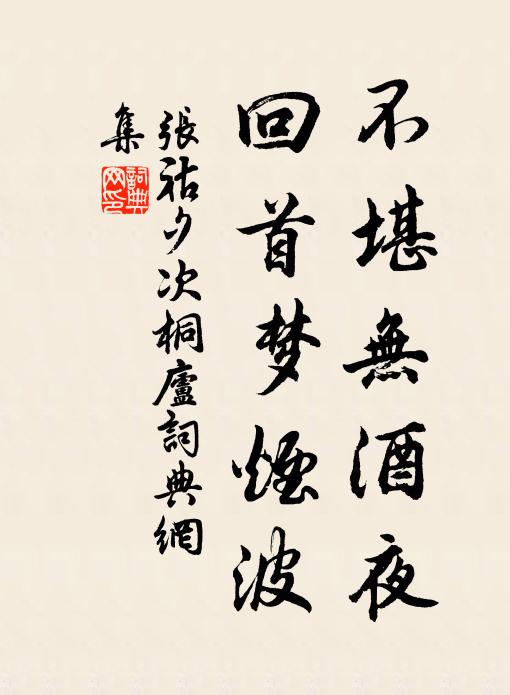 不堪無酒夜
回首梦煙波
張祜夕次桐廬詞典網
集
詞典网印